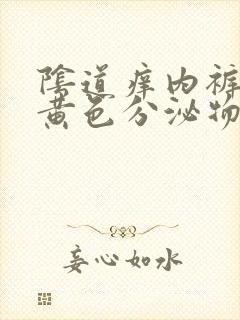 陰道痒内裤
黄色分泌物
妾心如水